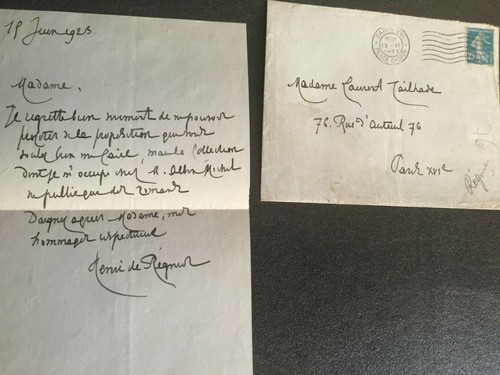 15 Juin 1923
Madame,
Je regrette bien vivement de ne pouvoir
profiter de la proposition que vous
voulez bien me faire, mais la Collection
dont je m'occupe chez M. Albin Michel
ne publie que des romans
Daignez agréer Madame, mes
hommages respectueux
Henri de Régnier
Madame Laurent Tailhade
76. Rue d'Auteuil 76
Paris XVIe
Régnier